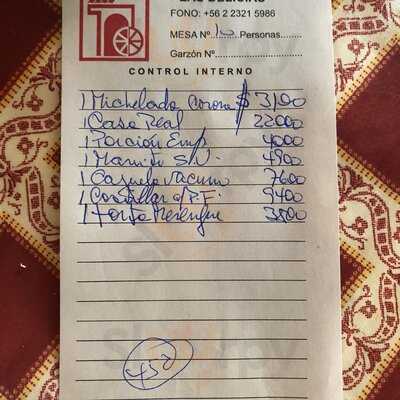 LAS DELICIAS
FONO: +56 2 2321 5986
MESA Nº 10 Personas
Garzón Nº
CONTROL INTERNO
1 Michelada Corona $ 3100
1 Casa Real 22000
1 Porción Emp. 4000
1 S/N. 4900
1 Cazuela Vacuno 7600
1 Costillar c/P.F. 9400
1 Torta Merengue 3800